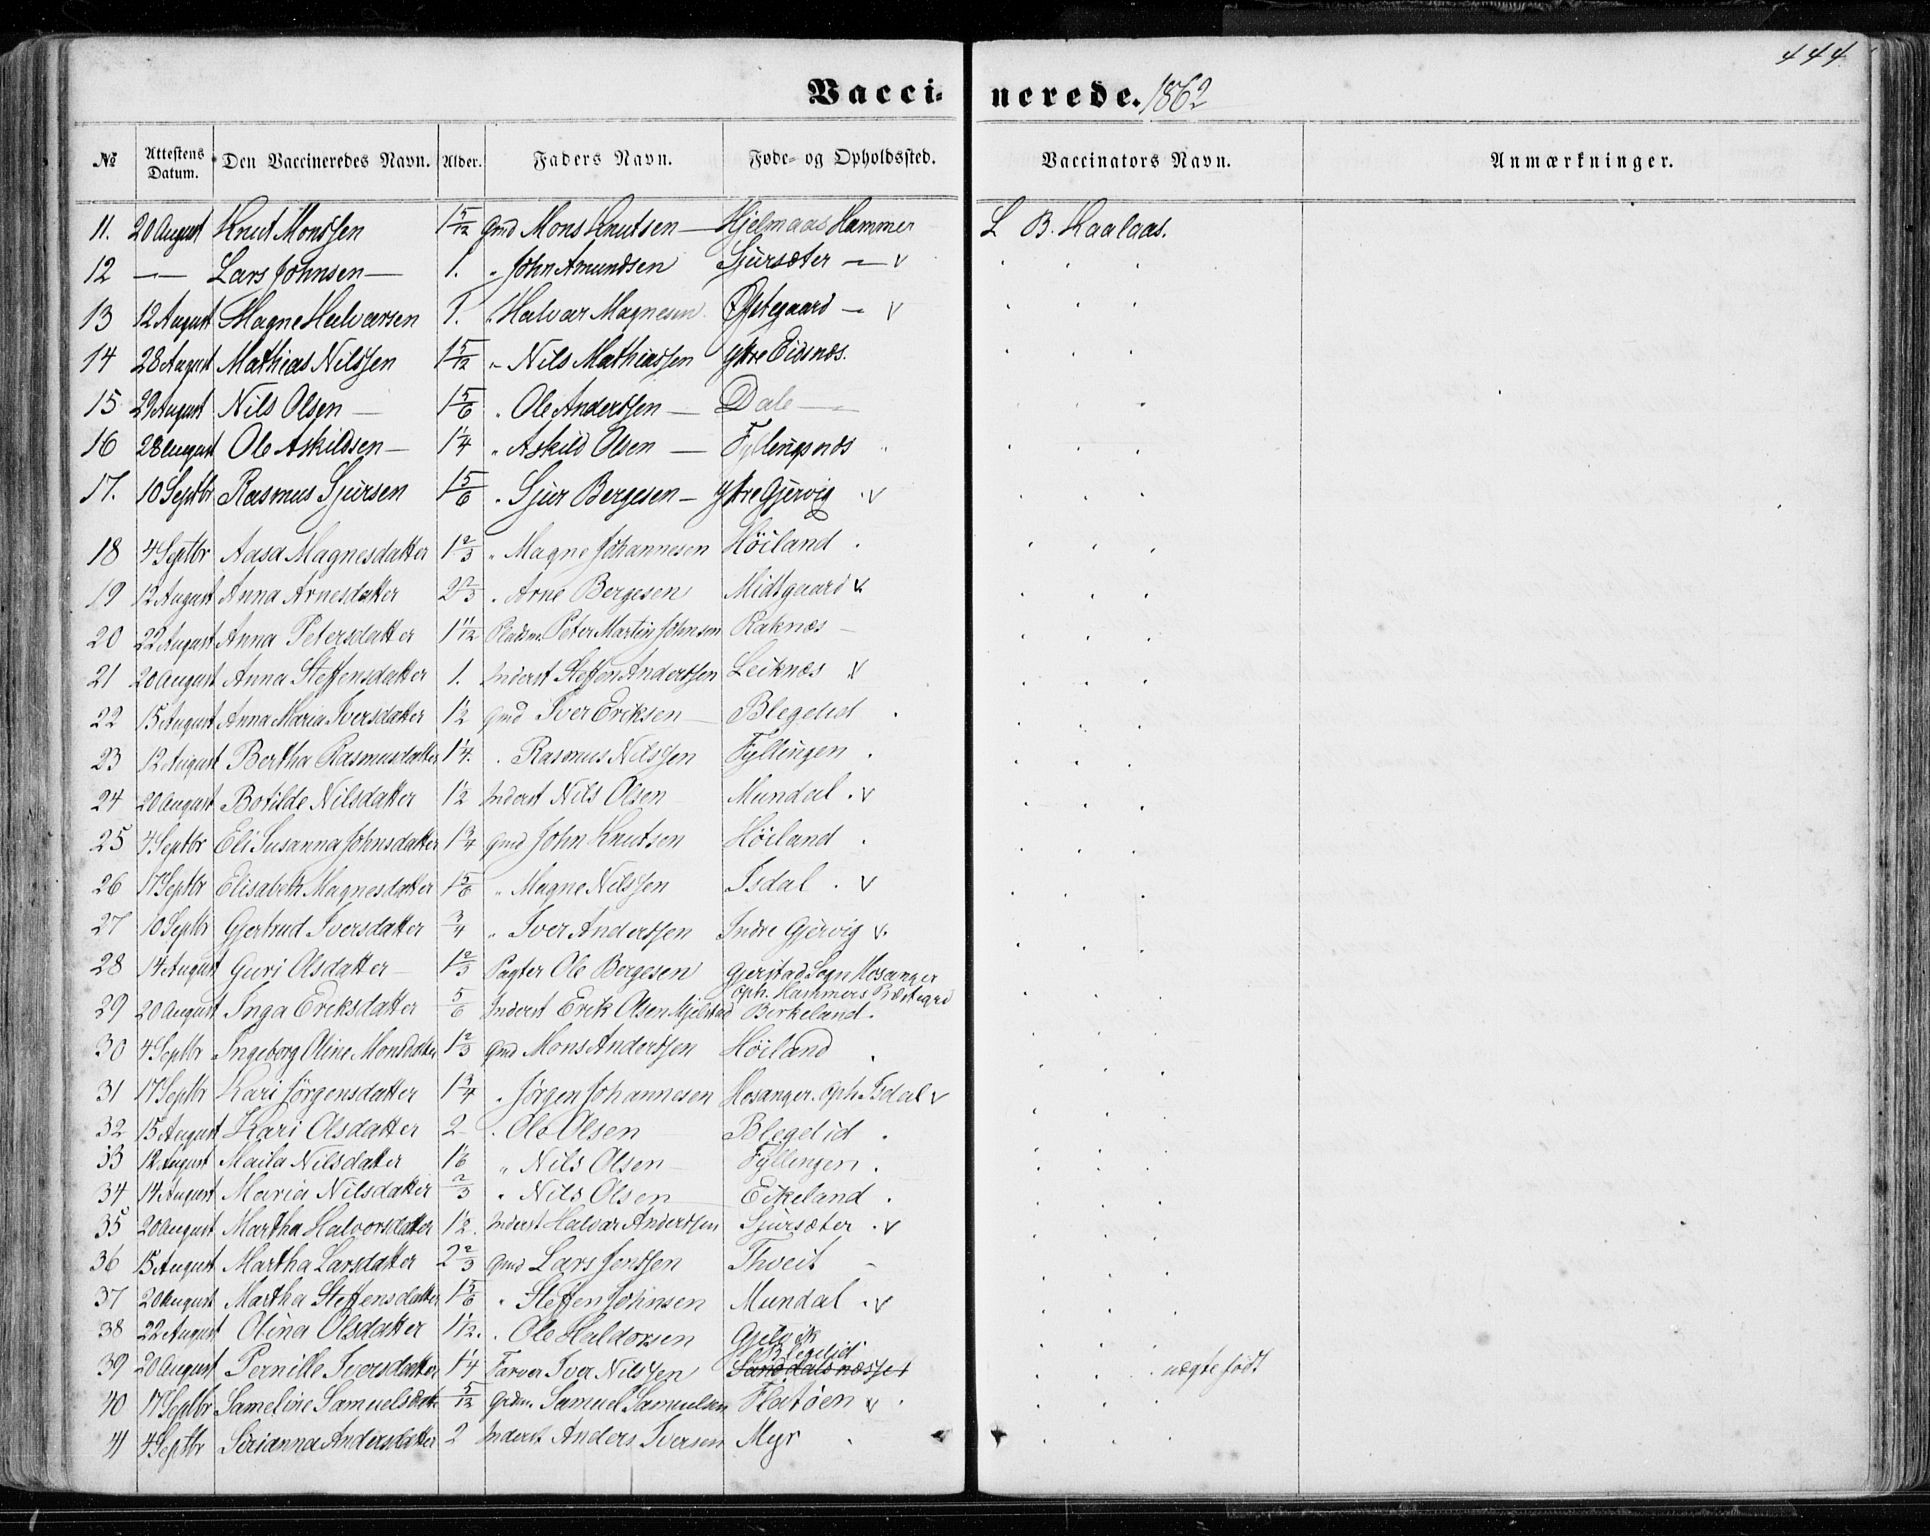 444
Vaccinerede. 1862
№ Attestens Datum. Den Vaccineredes Navn. Alder. Faders Navn. Føde- og Opholdssted. Vaccinators Navn. Anmærkninger.
11. 20 August Knut Monssen 1 5/12 Gmd Mons Knutsen — Hjelmaas Hammer L B. Kaalaas.
12 — Lars Johnsen — 1. " John Amundsen Sjursæter — v
13 12 August Magne Halvorsen 1. " Halvor Magnesen Østegaard — v
14 28 August Mathias Nilssen 1 5/12 " Nils Mathiassen Ytre Eidsnes.
15 29 August Nils Olsen — 1 5/6 " Ole Anderssen — Dale —
16 28 August Ole Askildsen — 1 1/4 " Askild Olsen — Fyllingsnæs "
17. 10 Septbr Rasmus Sjursen 1 5/6 " Sjur Bergesen — Ytre Gjervig v
18 4 Septbr Aasa Magnesdatter 1 2/3 " Magne Johannesen Høiland .
19 12 August Anna Arnesdatter 2 2/3 " Arne Bergesen Midtgaard v
20 22 August Anna Petersdatter 1 11/12 Pladsm. Peter Martin Johnsen Raknæs —
21 20 August Anna Steffensdatter 1. Inderst Steffen Anderssen Leiknæs v
22 15 August Anna Maria Iversdatter 1 1/2 Gmd Iver Eriksen — Blegelid .
23 12 August Bertha Rasmusdatter 1 1/4. . Rasmus Nilssen Fyllingen .
24 20 August Botilde Nilsdatter 1 1/2 Inderst Nils Olsen Mundal . v
25 4 Septbr Eli Susanna Johnsdatter 1 3/4 Gmd John Knutsen Høiland .
26 17 Septbr Elisabeth Magnesdatter 1 5/6 " Magne Nilssen Isdal . v
27 10 Septbr Gjertrud Iversdatter 3/4 " Iver Anderssen Indre Gjervig v.
28 14 August Guri Olsdatter — 1 2/3 Pagter Ole Bergesen Gjerstad Sogn Hosanger
Oph. Hammers Præstegrd
29 20 August Inga Eriksdatter 5/6 Inderst Erik Olsen Mjelstad Birkeland.
30 4 Septbr Ingeborg Oline Monsdatter 1 2/3 Gmd Mons Anderssen Høiland .
31 17 Septbr Kari Jørgensdatter 1 3/4 " Jørgen Johannesen Hosanger. Oph. Isdal v
32 15 August Kari Olsdatter 2 . Ole Olsen Blegelid .
33 12 August Maila Nilsdatter 1 1/6 " Nils Olsen — Fyllingen .
34 14 August Maria Nilsdatter 2/3 " Nils Olsen — Eikeland .
35 20 August Martha Halvorsdatter 1 1/2. Inderst Halvor Anderssen Sjursæter . v
36 15 August Martha Larsdatter 2 2/3 Gmd Lars Jenssen Thveit —
37 20 August Martha Steffensdatter 1 5/6 " Steffen Johnsen Mundal . v
38 22 August Olina Olsdatter 1 1/12. . Ole Haldorsen Gjelvik
Blegelid
39 20 August Pernille Iversdatter 1 1/4 Farver Iver Nilssen Sanddalsnæsset uægte født
40 17 Septbr Sameline Samuelsdatter 5/12 Grdm. Samuel Samuelsen Flatøen v .
41 4 Septbr Sirianna Andersdatter 2 Inderst Anders Iversen Myr .